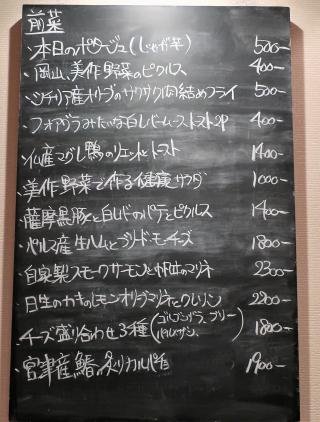 前菜
・本日のポタージュ(じゃが芋) 500-
・岡山、美作野菜のピクルス 400-
・シチリア産オリーブのサクサク肉詰めフライ 500-
・フォアグラみたいな白レバームーストースト2P 400-
・仏産マグレ鴨のリエットとトースト 1400-
・美作野菜で作る健康サラダ 1000-
・薩摩黒豚と白レバーのパテとピクルス 1400-
・パルマ産生ハムとブラインドモーチーズ 1800-
・自家製スモークサーモンと帆立のマリネ 2300-
・日生のカキのレモンオリーブマリネとクレソン 2200-
チーズ盛り合わせ3種(ゴルゴンゾラ、ブリー パルミジャーノ) 1800-
・宮津産鰆の炙りカルパッチョ 1900-